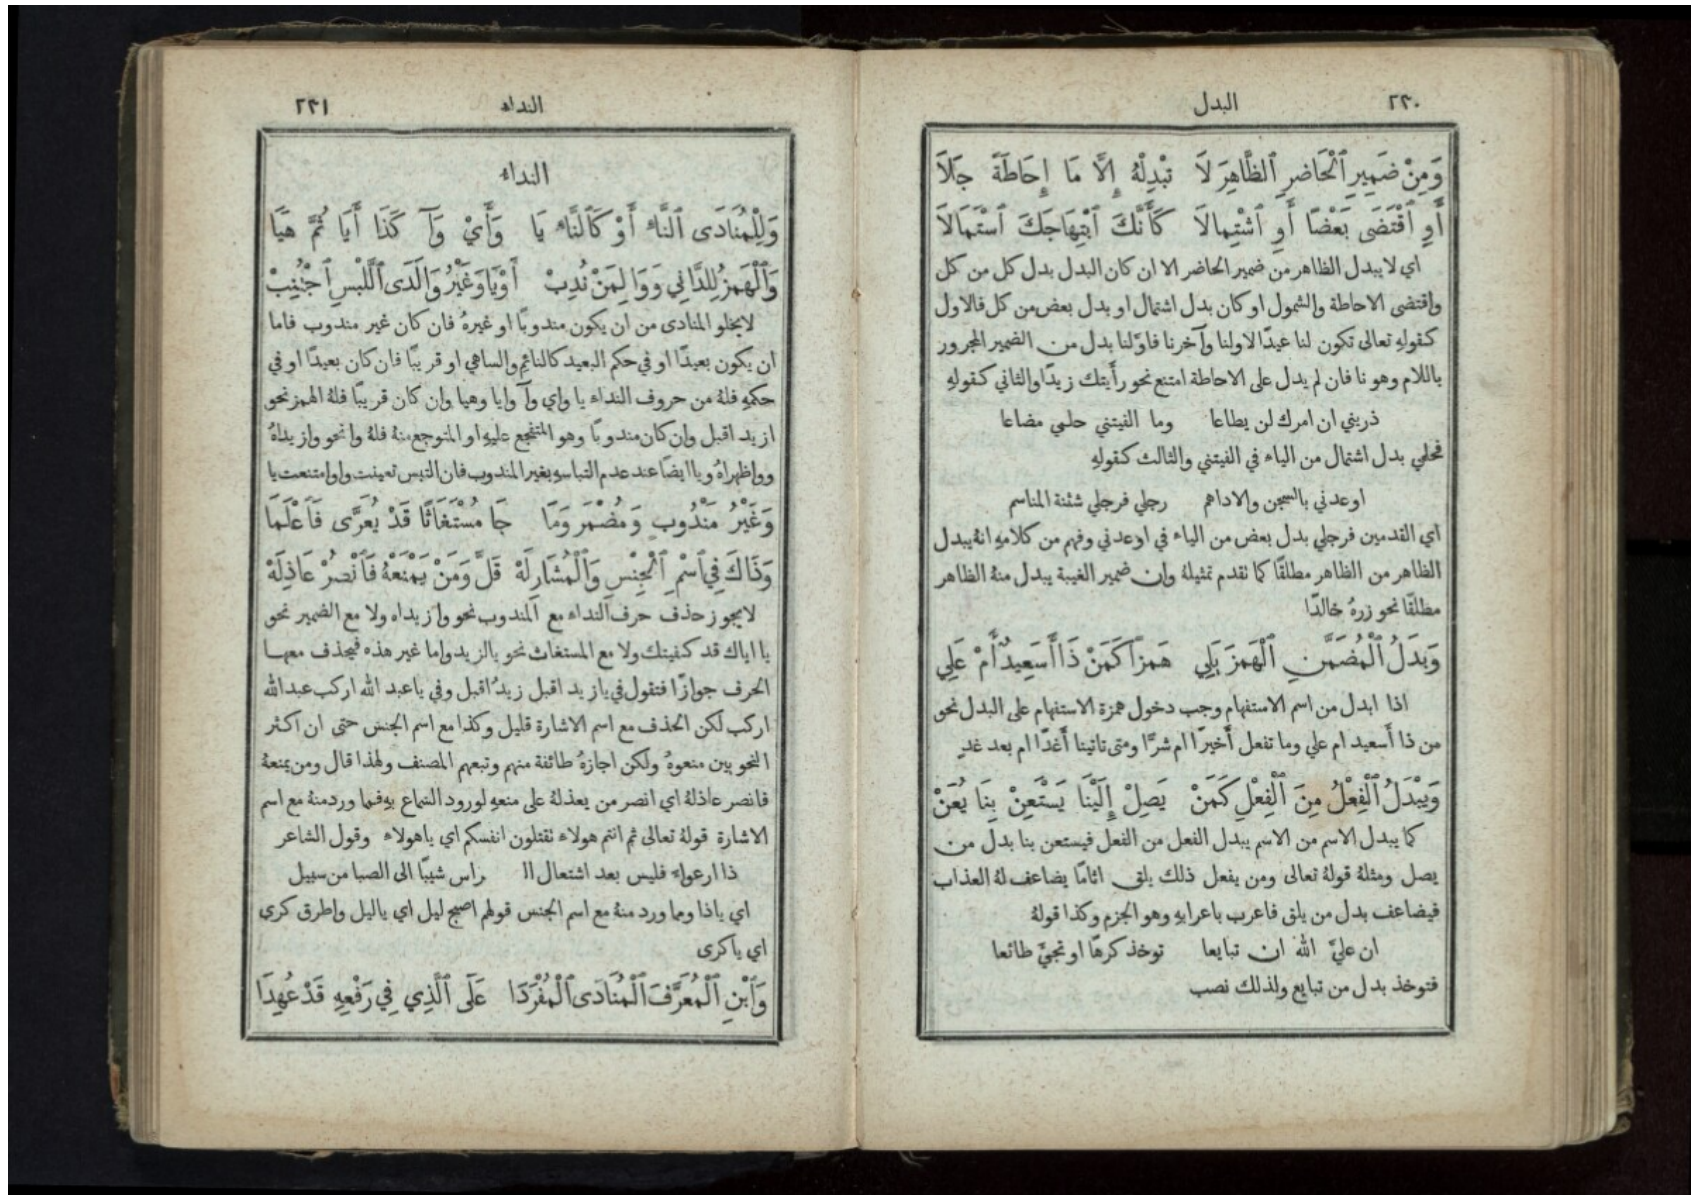 ٢٣٠ البدل
وَمِنْ ضَمِيرِ ٱلْحَاضِرِ ٱلظَّاهِرَ لَا تُبْدِلْهُ إِلَّا مَا إِحَاطَةً جَلَا
أَوِ ٱقْتَضَى بَعْضًا أَوِ ٱشْتِمالَا كَأَنَّكَ ٱبْتِهَاجَكَ ٱسْتَمَالَا
اي لا يبدل الظاهر من ضمير الحاضر الا ان كان البدل بدل كل من كل
واقتضى الاحاطة والشمول او كان بدل اشتمال او بدل بعض من كل فالاول
كقولهِ تعالى تكون لنا عيدًا لاولنا وآخرنا فاوّلنا بدل من الضمير المجرور
باللام وهو نا فان لم يدل على الاحاطة امتنع نحو رأَيتك زيدًا والثاني كقولهِ
ذريني ان امرك لن يطاعا وما الفيتني حلمي مضاعا
فحلمي بدل اشتمال من الياء في الفيتني والثالث كقولهِ
اوعدني بالسجن والاداهم رجلي فرجلي شثنة المناسم
اي القدمين فرجلي بدل بعض من الياء في اوعدني وفهم من كلامهِ انهُ يبدل
الظاهر من الظاهر مطلقًا كما تقدم تمثيلهُ وان ضمير الغيبة يبدل منهُ الظاهر
مطلقًا نحو زرهُ خالدًا
وَبَدَلُ ٱلْمُضَمَّنِ ٱلْهَمْزَ يَلِي هَمْزًا كَمَنْ ذَا أَسَعِيدٌ أَمْ عَلِي
اذا ابدل من اسم الاستفهام وجب دخول همزة الاستفهام على البدل نحو
من ذا أَسعيد ام علي وما تفعل أَخيرًا ام شرًّا ومتى تاتينا أَغدًا ام بعد غدٍ
وَيُبْدَلُ ٱلْفِعْلُ مِنَ ٱلْفِعْلِ كَمَنْ يَصِلْ إِلَيْنَا يَسْتَعِنْ بِنَا يُعَنْ
كما يبدل الاسم من الاسم يبدل الفعل من الفعل فيستعن بنا بدل من
يصل ومثلهُ قولهُ تعالى ومن يفعل ذلك يلق اثامًا يضاعف لهُ العذاب
فيضاعف بدل من يلق فاعرب باعرابهِ وهو الجزم وكذا قولهُ
ان عليَّ الله ان تبايعا توخذ كرهًا او تجيَّ طائعا
فتوخذ بدل من تبايع ولذلك نصب
النداء ٢٣١
النداء
وَلِلْمُنَادَى ٱلنَّاءِ أَوْ كَٱلنَّاءِ يَا وَأَيْ وَآ كَذَا أَيَا ثُمَّ هَيَا
وَٱلْهَمْزُ لِلدَّانِي وَوَا لِمَنْ نُدِبْ أَوْ يَا وَغَيْرُ وَا لَدَى ٱللَّبْسِ ٱجْتُنِبْ
لا يخلو المنادى من ان يكون مندوبًا او غيرهُ فان كان غير مندوب فاما
ان يكون بعيدًا او في حكم البعيد كالنائم والساهي او قريبًا فان كان بعيدًا او في
حكمهِ فلهُ من حروف النداء يا واي وآ وايا وهيا وان كان قريبًا فلهُ الهمز نحو
ازيد اقبل وان كان مندوبًا وهو المتفجع عليهِ او المتوجع منهُ فلهُ وا نحو وازيداهُ
وواظهراهُ ويا ايضًا عند عدم التباسهِ بغير المندوب فان التبس تعينت وا وامتنعت يا
وَغَيْرُ مَنْدُوبٍ وَمُضْمَرٍ وَمَا جَا مُسْتَغَاثًا قَدْ يُعَرَّى فَٱعْلَمَا
وَذَاكَ فِي ٱسْمِ ٱلْجِنْسِ وَٱلْمُشَارِ لَهْ قَلَّ وَمَنْ يَمْنَعْهُ فَٱنْصُرْ عَاذِلَهْ
لا يجوز حذف حرف النداء مع المندوب نحو وازيداه ولا مع الضمير نحو
يا اياك قد كفيتك ولا مع المستغاث نحو يالزيد واما غير هذه فيحذف معها
الحرف جوازًا فتقول في يا زيد اقبل زيدُ اقبل وفي يا عبد الله اركب عبد الله
اركب لكن الحذف مع اسم الاشارة قليل وكذا مع اسم الجنس حتى ان اكثر
النحويين منعوهُ ولكن اجازهُ طائفة منهم وتبعهم المصنف ولهذا قال ومن يمنعهُ
فانصر عاذلهُ اي انصر من يعذلهُ على منعهِ لورود السماع بهِ فمما ورد منهُ مع اسم
الاشارة قولهُ تعالى ثم انتم هولاء تقتلون انفسكم اي يا هولاء وقول الشاعر
ذا ارعواء فليس بعد اشتعال ال راس شيبًا الى الصبا من سبيل
اي ياذا ومما ورد منهُ مع اسم الجنس قولهم اصبح ليل اي ياليل واطرق كرى
اي ياكرى
وَٱبْنِ ٱلْمُعَرَّفَ ٱلْمُنَادَى ٱلْمُفْرَدَا عَلَى ٱلَّذِي فِي رَفْعِهِ قَدْ عُهِدَا